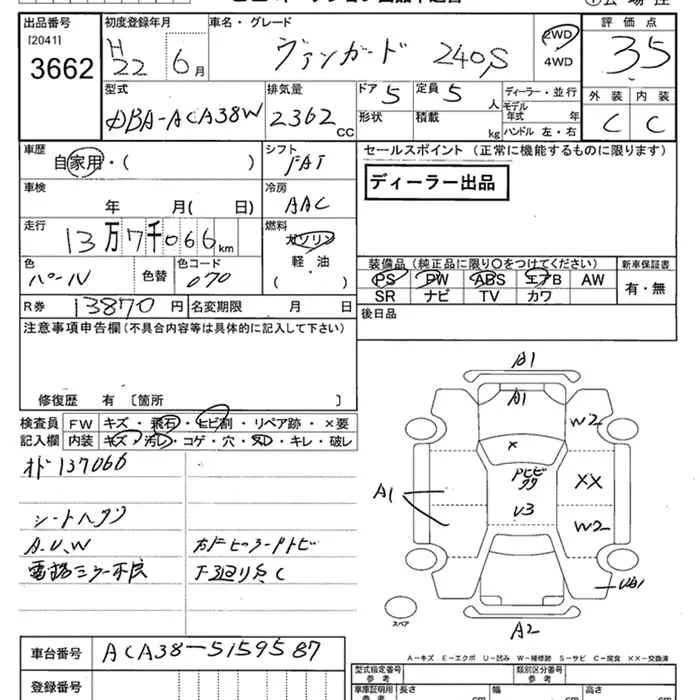 出品番号 初度登録年月 車名・グレード 評価点
[2041]
3662 H22 6月 ヴァンガード 240S 2WD 4WD 3.5
型式 排気量 ドア 5 定員 5人 ディーラー・並行 外装 内装
DBA-ACA38W 2362 CC 形状 積載 kg モデル年式 年 C C
ハンドル 左・右
車歴 シフト セールスポイント (正常に機能するものに限ります)
自家用・( ) FAT
ディーラー出品
車検 冷房
年 月( 日) AAC
走行 燃料
13万7千066km ガソリン
軽・油
( )
色 色替 色コード 装備品 (純正品に限り○をつけてください) 新車保証書
パール 070 PS PW ABS エアB AW 有・無
SR ナビ TV カワ
R券 13870円 名変期限 月 日 後日品
注意事項申告欄 (不具合内容等は具体的に記入して下さい)
修復歴 有 〔箇所 〕
検査員 FW キズ・飛石・ヒビ割・リペア跡・×要
記入欄 内装 キズ・汚レ・コゲ・穴・スレ・キレ・破レ
オド137066
シートヘタリ
A.U.W
電格ミラー不良 下廻りS C
A1
A1
W2
×
XX
A1
U3
W2
UB1
A2
スペア
A-キズ E-エクボ U-凹み W-補修跡 S-サビ C-腐食 XX-交換済
車台番号 ACA38-5159587
登録番号
型式指定番号 参考 類別区分番号 参考
車庫証明用 参考 長さ cm 幅 cm 高さ cm